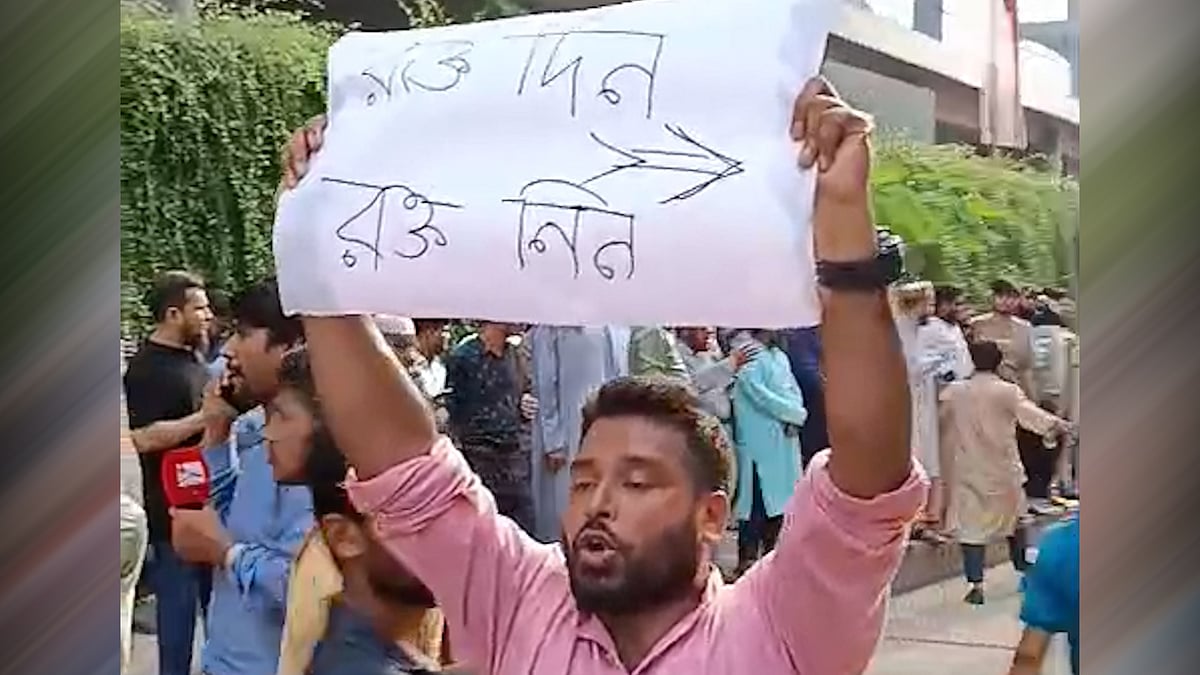 রক্ত দিন
রক্ত নিন